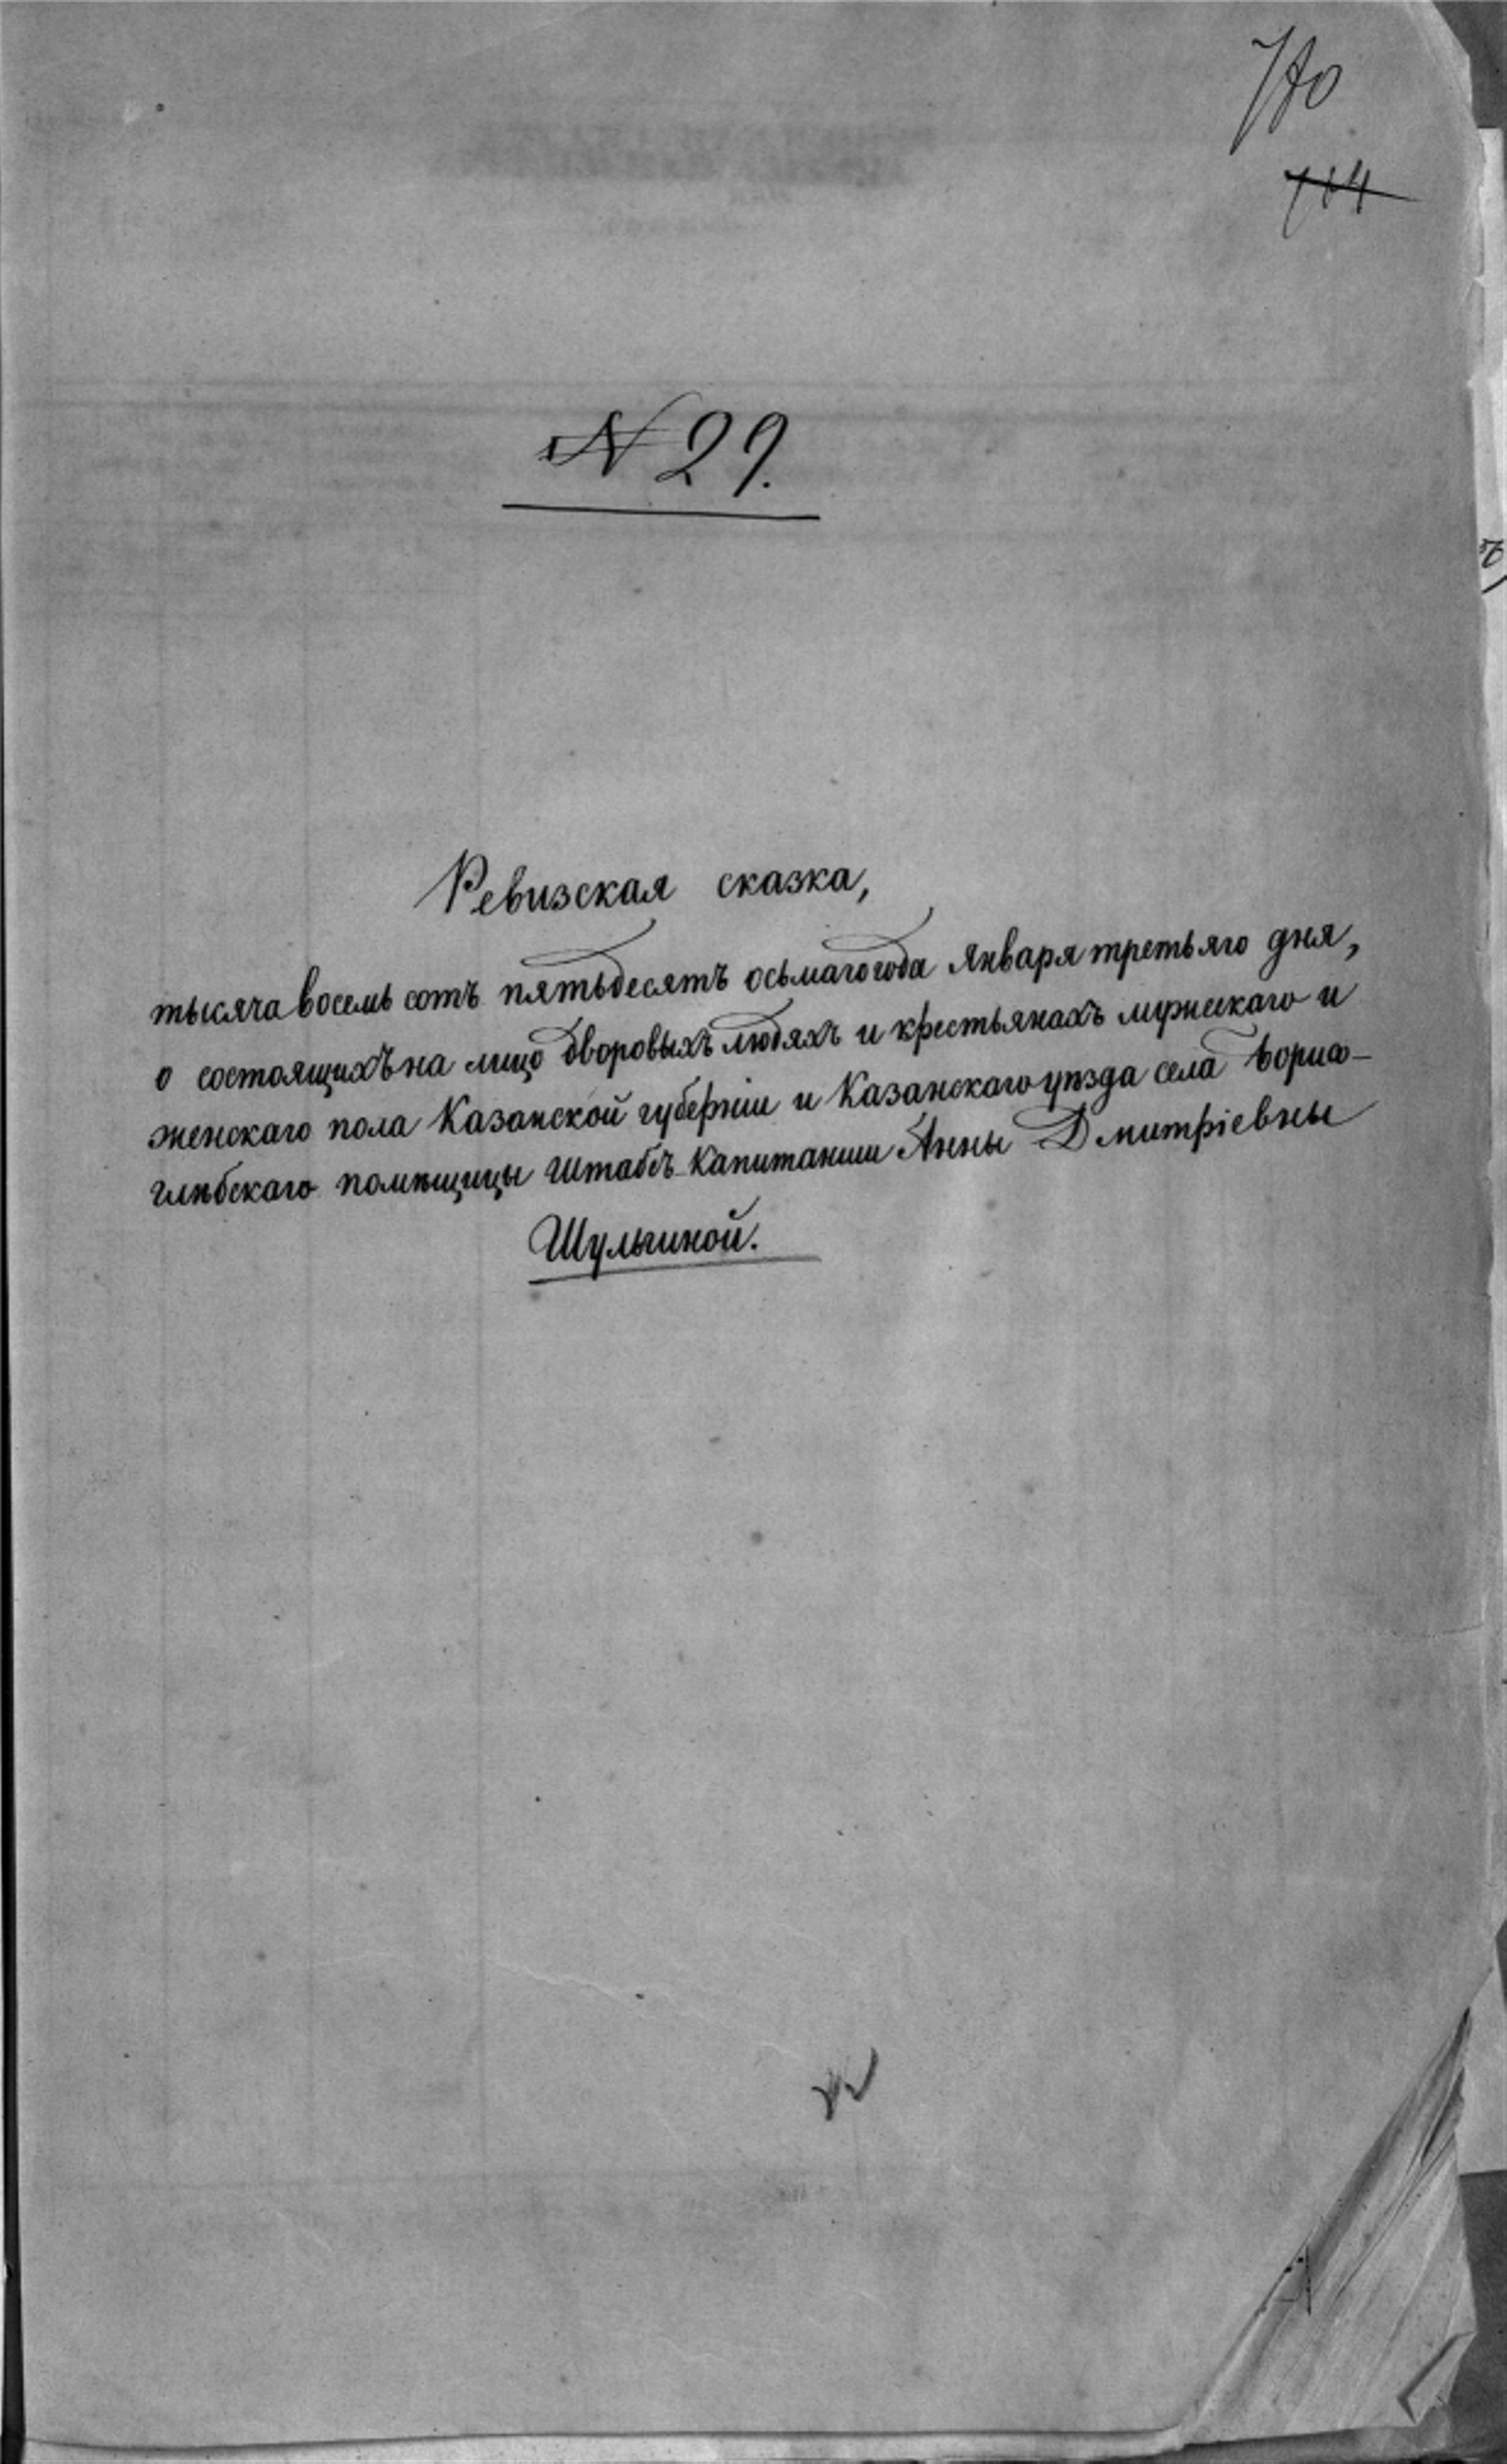 770
714
№ 29.
Ревизская сказка,
тысяча восемь сотъ пятьдесятъ осьмаго года Января третьяго дня,
о состоящихъ на лицо дворовыхъ людяхъ и крестьянахъ мужескаго и
женскаго пола Казанской губерніи и Казанскаго уѣзда села Борисо-
глѣбскаго помѣщицы Штабсъ-Капитанши Анны Дмитріевны
Шульгиной.